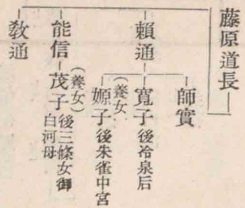 藤原道長
賴通
師實
寬子 後冷泉后
(養女)
嫄子 後朱雀中宮
能信
(養女)
茂子 後三條女御
白河母
敎通